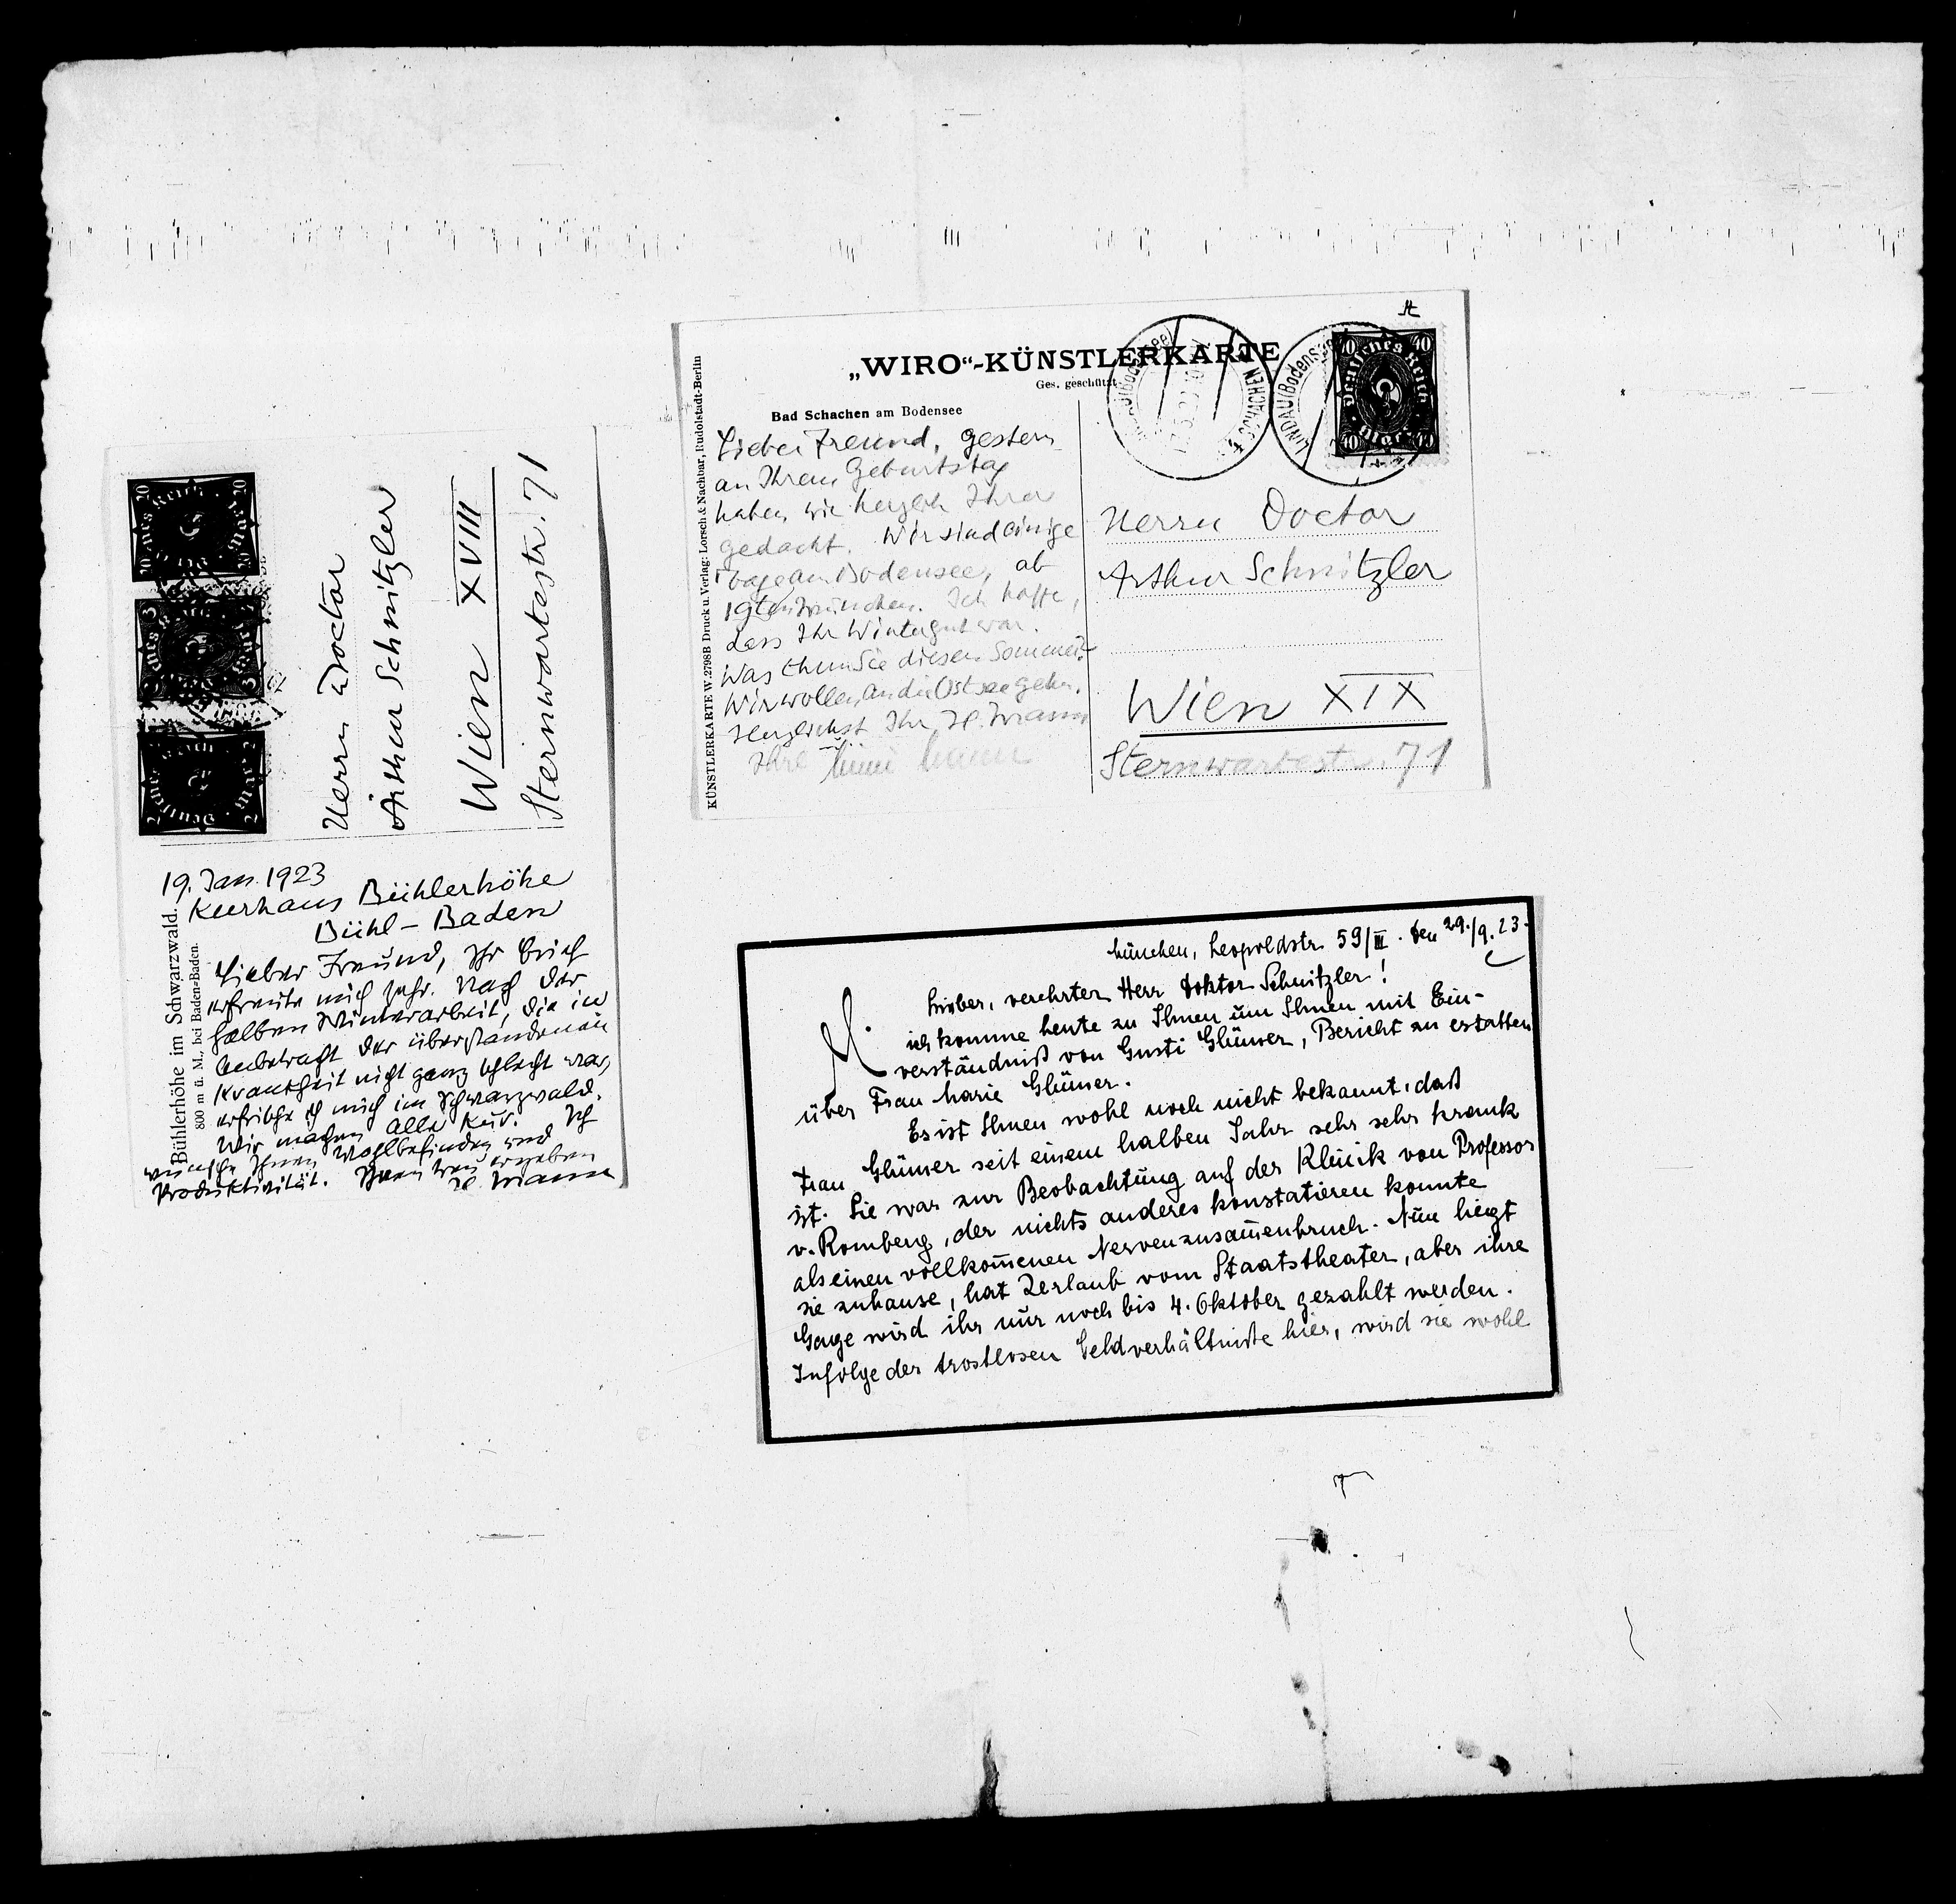 Herrn Doctor
Arthur Schnitzler
Wien XVIII
Sternwartestr. 71
Bühlerhöhe im Schwarzwald.
800 m ü. M., bei Baden-Baden.
19. Jan. 1923
Kurhaus Bühlerhöhe
Bühl – Baden
Lieber Freund, Ihr Brief
erfreute mich sehr. Nach der
halben Winterarbeit, die in
Anbetracht der überstandenen
Krankheit nicht ganz schlecht war,
erfrische ich mich im Schwarzwald.
Wir machen alle Kur. Ich
wünsche Ihnen Wohlbefinden und
Produktivität. Ihnen treu ergeben
H. Mann
„WIRO“-KÜNSTLERKARTE
Ges. geschützt
Bad Schachen am Bodensee
KÜNSTLERKARTE W. 2798B Druck u. Verlag: Lorsch & Nachbar, Rudolstadt-Berlin
Lieber Freund, gestern
an Ihrem Geburtstag
haben wir herzlich Ihrer
gedacht. Wir sind einige
Tage am Bodensee, ab
19ten München. Ich hoffe,
dass Ihr Winter gut war.
Was thun Sie diesen Sommer?
Wir wollen an die Ostsee gehn.
Herzlichst Ihr H. Mann
Ihre Mimi Mann
LINDAU (Bodensee)
40 40
Deutsches Reich
Mark
40 40
Herrn Doctor
Arthur Schnitzler
Wien XIX
Sternwartestr. 71
München, Leopoldstr. 59/III. den 29./9. 23.
Lieber, verehrter Herr Doktor Schnitzler!
ich komme heute zu Ihnen um Ihnen mit Ein-
verständniß von Gusti Glümer, Bericht zu erstatten
über Frau Marie Glümer.
Es ist Ihnen wohl noch nicht bekannt, daß
Frau Glümer seit einem halben Jahr sehr sehr krank
ist. Sie war zur Beobachtung auf der Klinik von Professor
v. Romberg, der nichts anderes konstatieren konnte
als einen vollkom̅enen Nervenzusam̅enbruch. Nun liegt
sie zuhause, hat Urlaub vom Staatstheater, aber ihre
Gage wird ihr nur noch bis 4. Oktober gezahlt werden.
Infolge der trostlosen Geldverhältniße hier, wird sie wohl